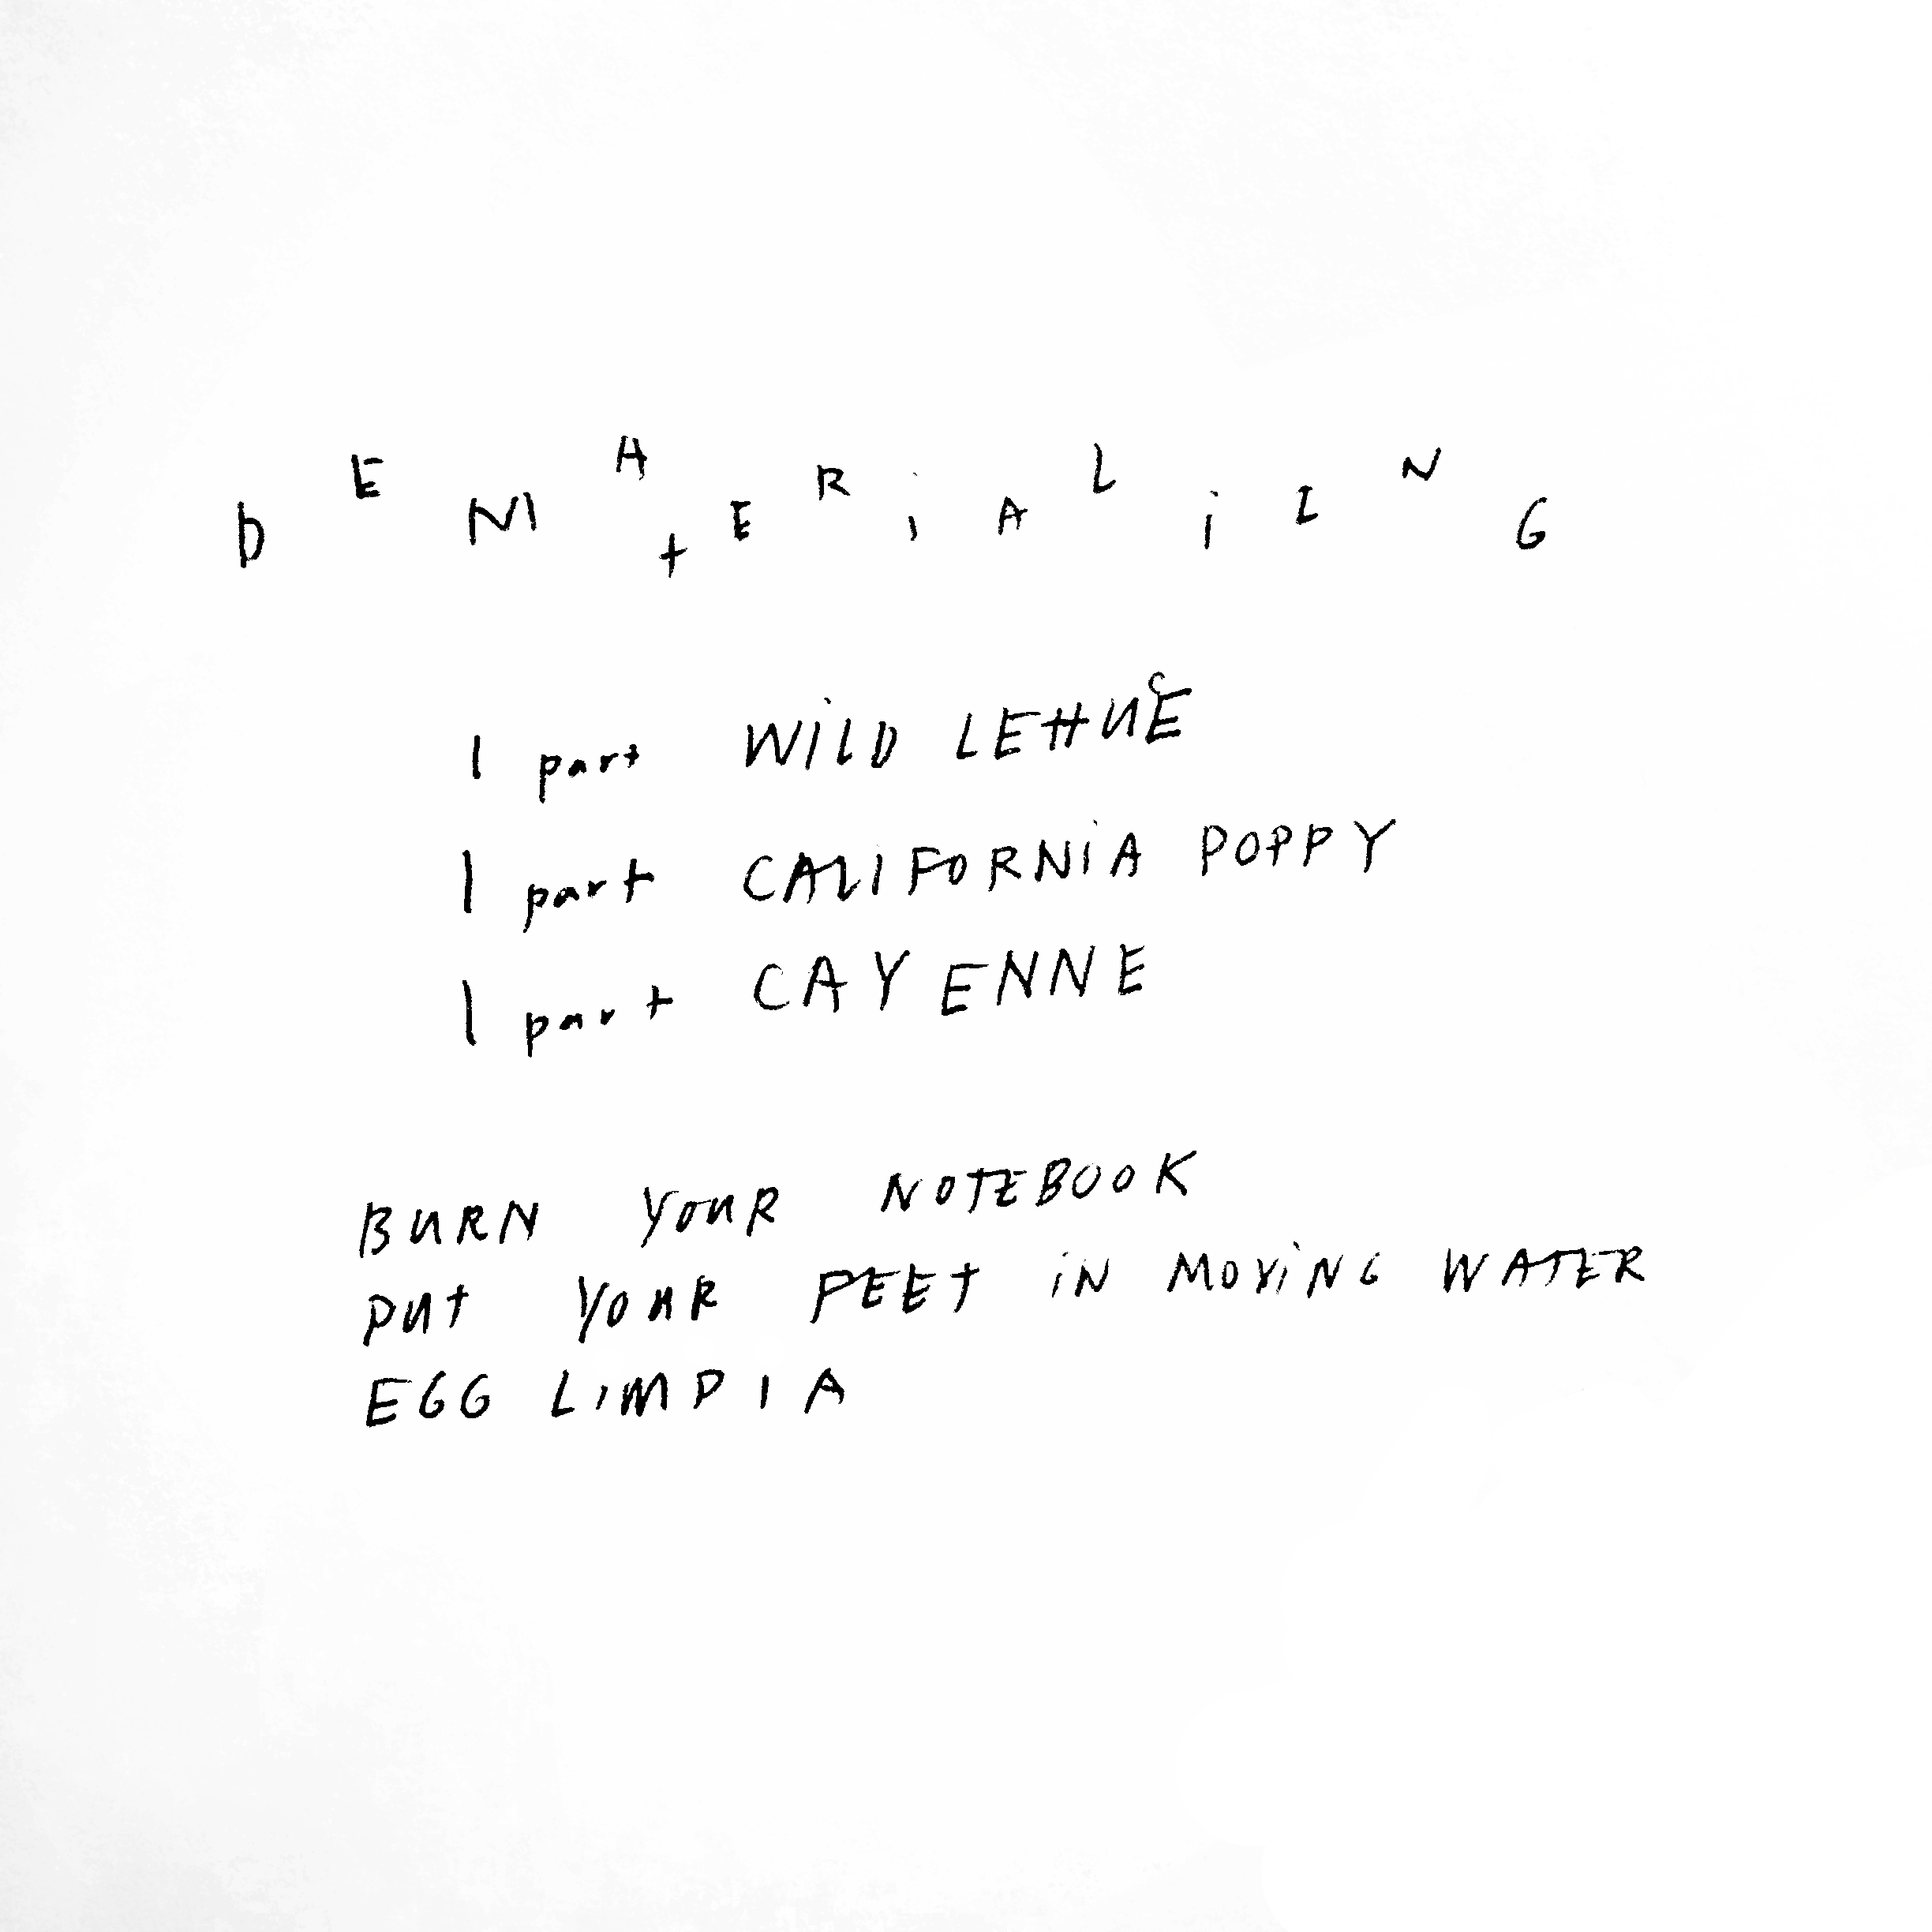 DEMAtERiALiZNG
1 part WiLD LETTUCE
1 part CALIFORNiA POPPY
1 part CAYENNE
BURN YOUR NOTEBOOK
PUt YOUR FEEt iN MOViNG WATER
EGG LiMPIA